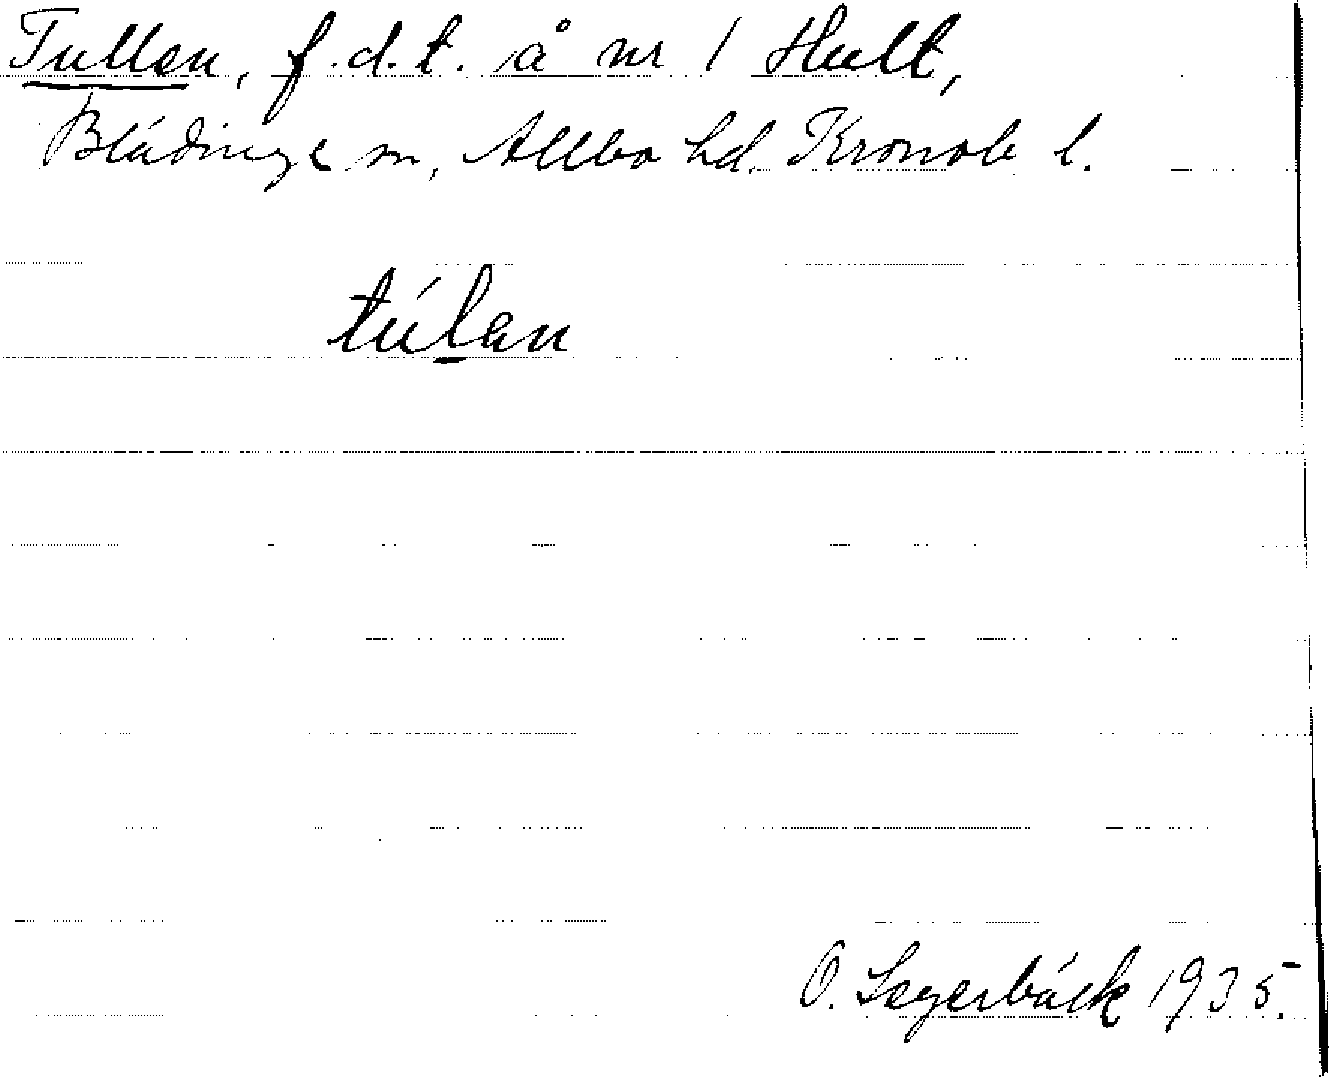 Tullen, f.d.t. å nr 1 Hult,
Blädinge sn, Allbo hd. Kronob l.
túlan
O. Segerbäck 1935.